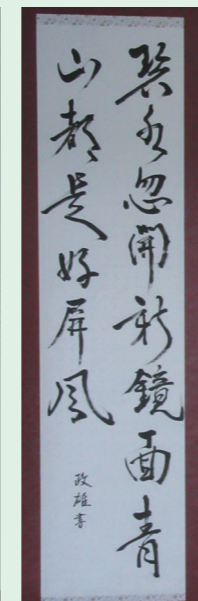 碧水忽開新鏡面青
山都是好屏風
政雄書